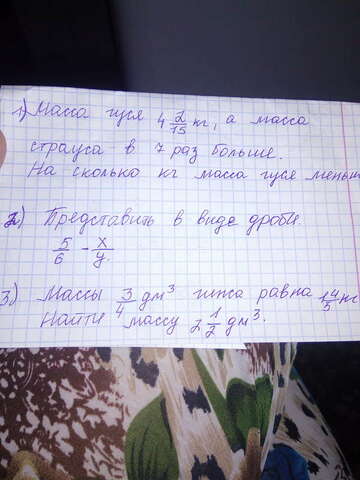 1) Масса гуся 4 2/15 кг, а масса
страуса в 7 раз больше.
На сколько кг масса гуся меньше
2) Представить в виде дроби.
5/6 - x/y.
3) Массы 3/4 дм³ гипса равна 1 4/5 кг
Найти массу 2 1/2 дм³.